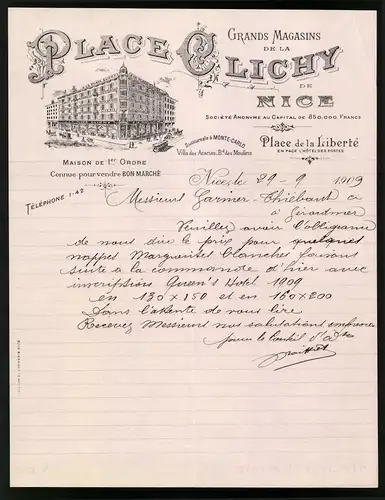 GRANDS MAGASINS
DE LA
PLACE CLICHY
DE
NICE
SOCIÉTÉ ANONYME AU CAPITAL DE 850,000 FRANCS
Succursale à MONTE-CARLO
Villa des Acacias, Bd des Moulins
Place de la Liberté
EN FACE L'HÔTEL DES POSTES
MAISON DE 1er ORDRE
Connue pour vendre BON MARCHÉ
TÉLÉPHONE 1-42
Nice, le 29 - 9 1909
Messieurs Garnier-Thiébaut
à Gérardmer
Veuillez avoir l'obligeance
de nous dire le prix pour quelques
nappes Marguerites blanches faisant
suite à la commande d'hier avec
inscriptions Queen's Hotel 1909
en 130 x 150 et en 160 x 200
Dans l'attente de vous lire
Recevez Messieurs nos salutations empressées
pour le Conseil d'